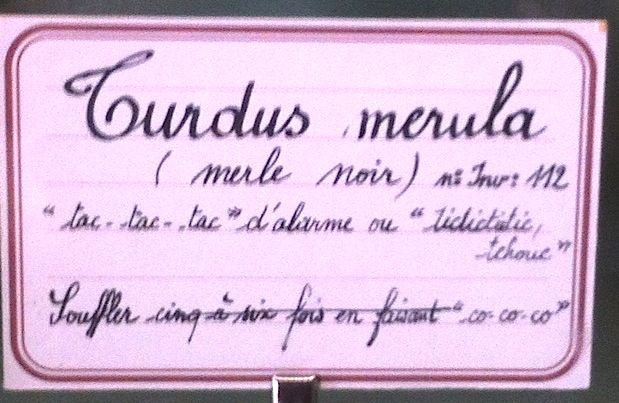 Turdus merula
( merle noir) n° Inv: 112
" tac - tac - tac " d'alarme ou " tidictictic,
tchouc "
Souffler cinq à six fois en faisant " co-co-co "